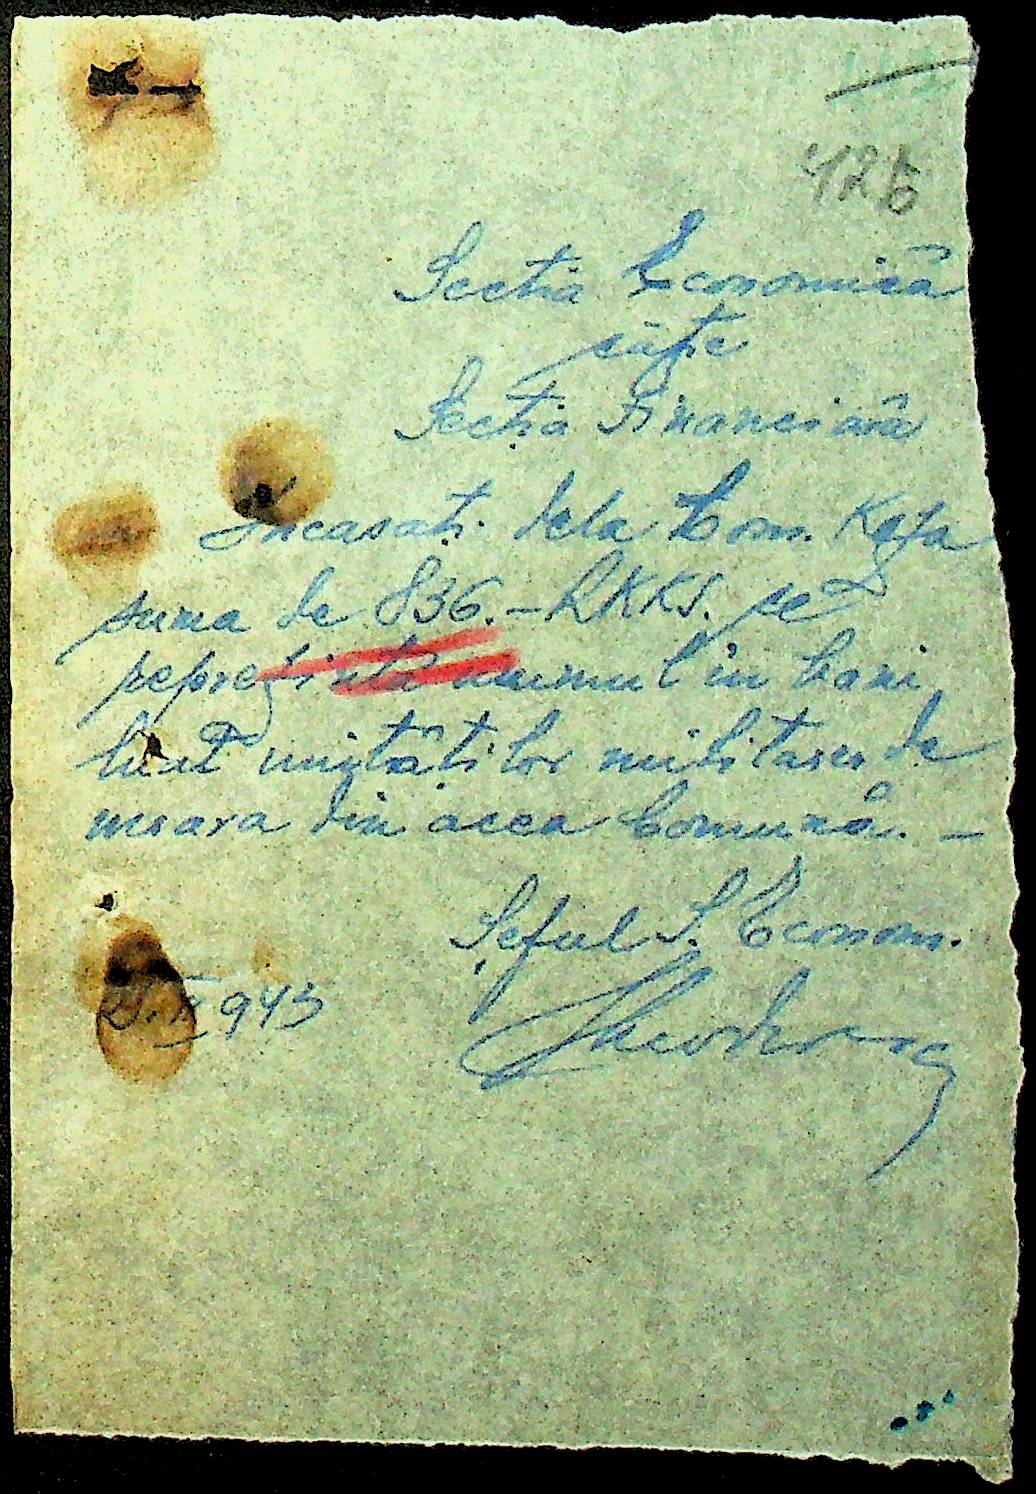 425
Secția Economică
către
Secția Financiară
Încasați dela Com. Kaja
suma de 836.– RKKS. ce
reprezintă uiumul în bani
luat unităților militare de
moara din acea Comună. –
Șeful S. Econom.
943